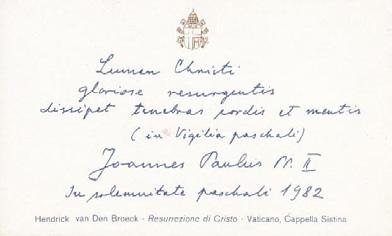 Lumen Christi
gloriose resurgentis
dissipet tenebras cordis et mentis
(in Vigilia paschali)
Joannes Paulus PP. II
In solemnitate paschali 1982
Hendrick van Den Broeck - Resurrezione di Cristo - Vaticano, Cappella Sistina